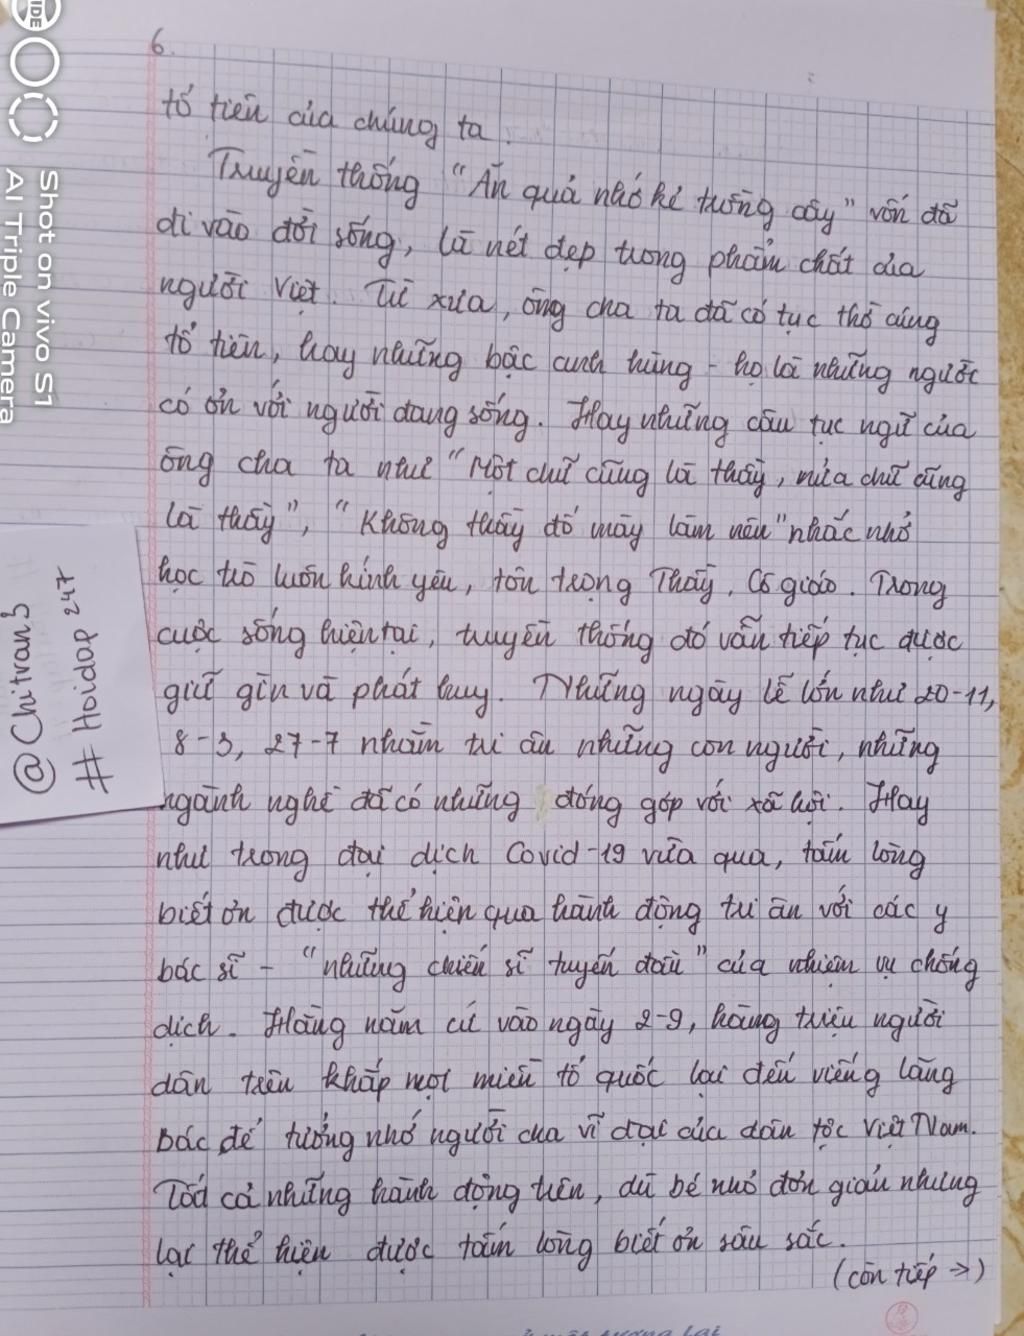 6.
tổ tiên của chúng ta.
Truyền thống "Ăn quả nhớ kẻ trồng cây" vốn đã
đi vào đời sống, là nét đẹp trong phẩm chất của
người Việt. Từ xưa, ông cha ta đã có tục thờ cúng
tổ tiên, hay những bậc anh hùng - họ là những người
có ơn với người đang sống. Hay những câu tục ngữ của
ông cha ta như "Một chữ cũng là thầy, nửa chữ cũng
là thầy", "Không thầy đố mày làm nên" nhắc nhở
học trò luôn kính yêu, tôn trọng Thầy, Cô giáo. Trong
cuộc sống hiện tại, truyền thống đó vẫn tiếp tục được
giữ gìn và phát huy. Những ngày lễ lớn như 20-11,
8-3, 27-7 nhằm tri ân những con người, những
ngành nghề đã có những đóng góp với xã hội. Hay
như trong đại dịch Covid-19 vừa qua, tấm lòng
biết ơn được thể hiện qua hành động tri ân với các y
bác sĩ - "những chiến sĩ tuyến đầu" của nhiệm vụ chống
dịch. Hằng năm cứ vào ngày 2-9, hàng triệu người
dân trên khắp mọi miền tổ quốc lại đến viếng lăng
Bác để tưởng nhớ người cha vĩ đại của dân tộc Việt Nam.
Tất cả những hành động trên, dù bé nhỏ đơn giản nhưng
lại thể hiện được tấm lòng biết ơn sâu sắc.
(còn tiếp →)
@Chitran3
# Hoidap 247
Shot on vivo S1
AI Triple Camera